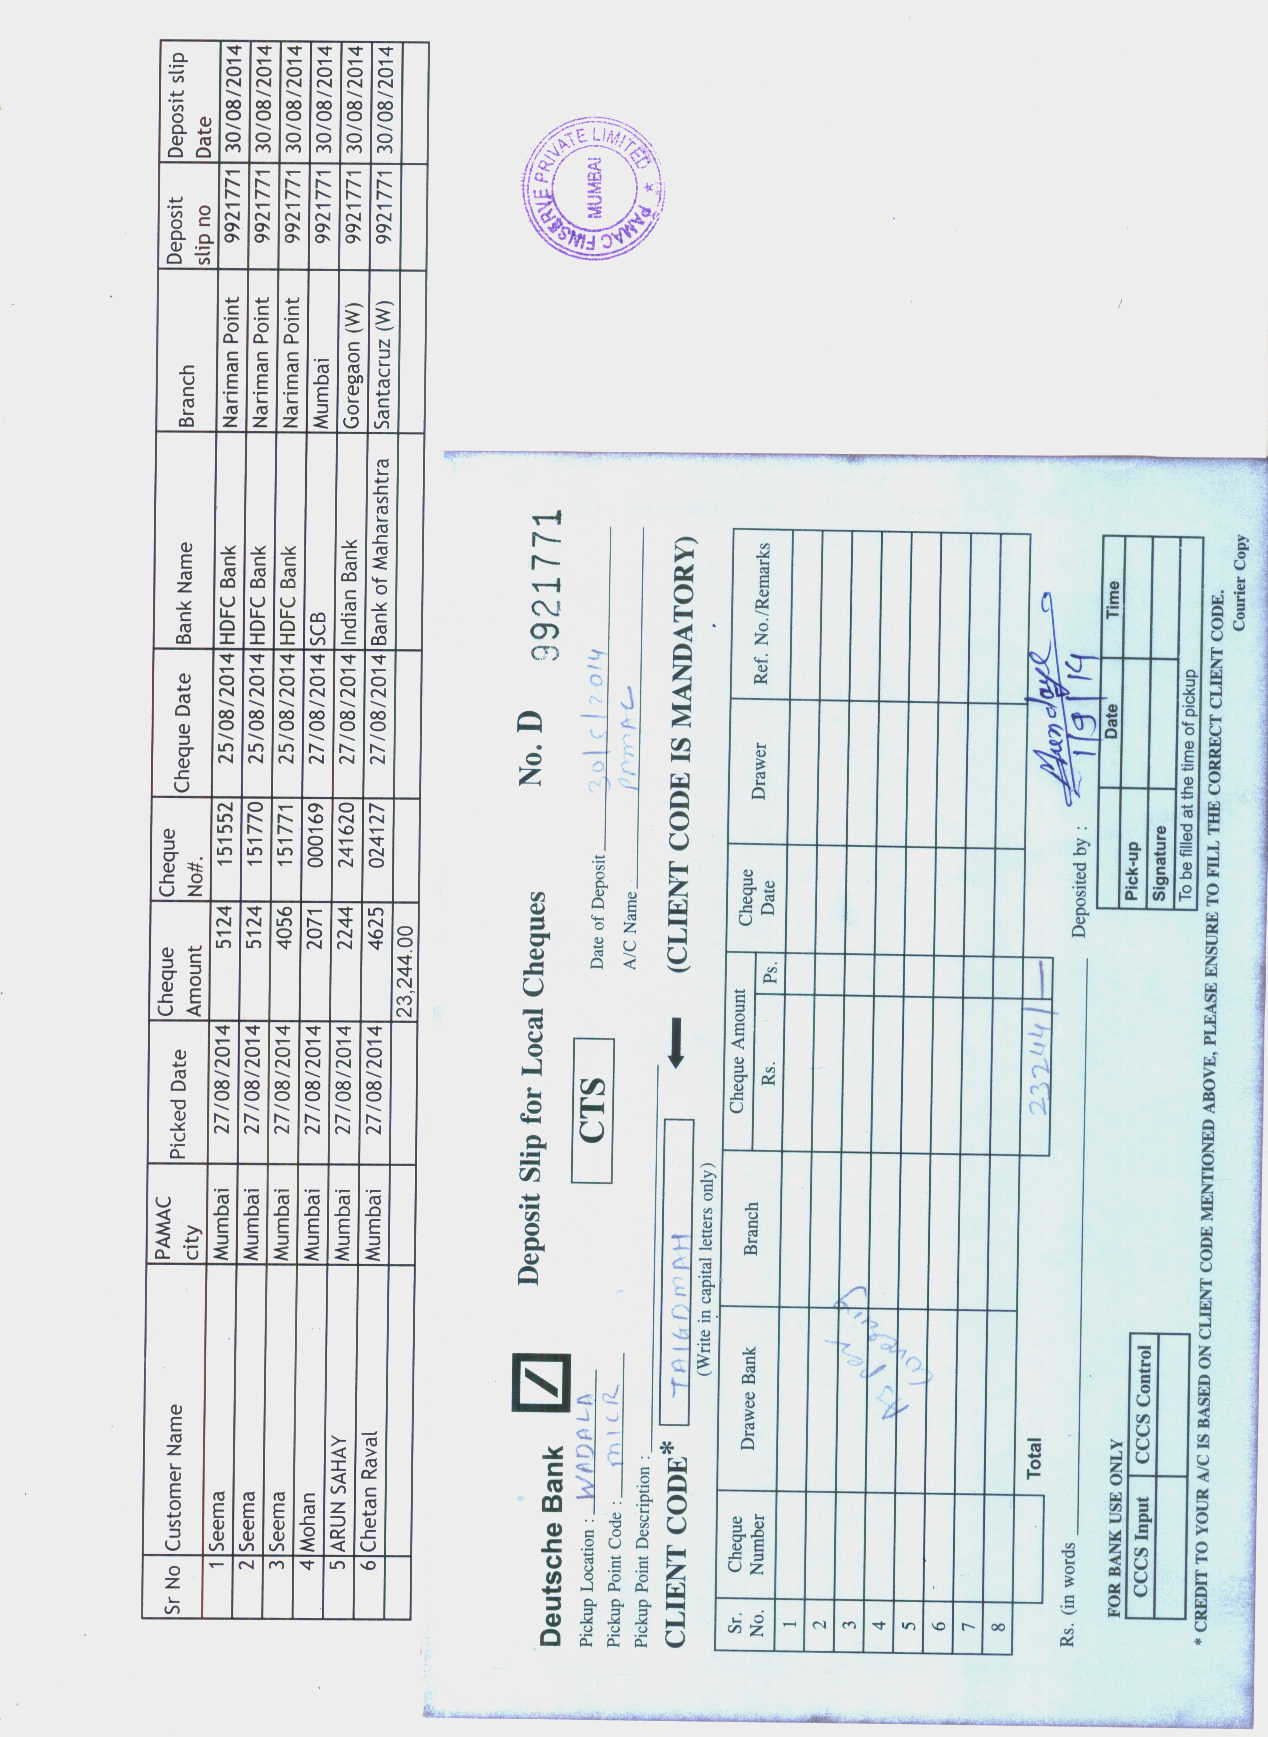 Sr No Customer Name PAMAC city Picked Date Cheque Amount Cheque No#. Cheque Date Bank Name Branch Deposit slip no Deposit slip Date
1 Seema Mumbai 27/08/2014 5124 151552 25/08/2014 HDFC Bank Nariman Point 9921771 30/08/2014
2 Seema Mumbai 27/08/2014 5124 151770 25/08/2014 HDFC Bank Nariman Point 9921771 30/08/2014
3 Seema Mumbai 27/08/2014 4056 151771 25/08/2014 HDFC Bank Nariman Point 9921771 30/08/2014
4 Mohan Mumbai 27/08/2014 2071 000169 27/08/2014 SCB Mumbai 9921771 30/08/2014
5 ARUN SAHAY Mumbai 27/08/2014 2244 241620 27/08/2014 Indian Bank Goregaon (W) 9921771 30/08/2014
6 Chetan Raval Mumbai 27/08/2014 4625 024127 27/08/2014 Bank of Maharashtra Santacruz (W) 9921771 30/08/2014
23,244.00
PAMAC FINSERVE PRIVATE LIMITED *
MUMBAI
Deutsche Bank Deposit Slip for Local Cheques No. D 9921771
Pickup Location : WADALA CTS Date of Deposit 30/8/2014
Pickup Point Code : MICR A/C Name PAMAC
Pickup Point Description :
CLIENT CODE* TAIGDMAH (CLIENT CODE IS MANDATORY)
(Write in capital letters only)
Sr. No. Cheque Number Drawee Bank Branch Cheque Amount Rs. Ps. Cheque Date Drawer Ref. No./Remarks
1
2
3
4
5
6
7
8
As Per
Total 23244/-
Rs. (in words Deposited by :
1/9/14
FOR BANK USE ONLY
CCCS Input CCCS Control
Date Time
Pick-up
Signature
To be filled at the time of pickup
* CREDIT TO YOUR A/C IS BASED ON CLIENT CODE MENTIONED ABOVE, PLEASE ENSURE TO FILL THE CORRECT CLIENT CODE.
Courier Copy